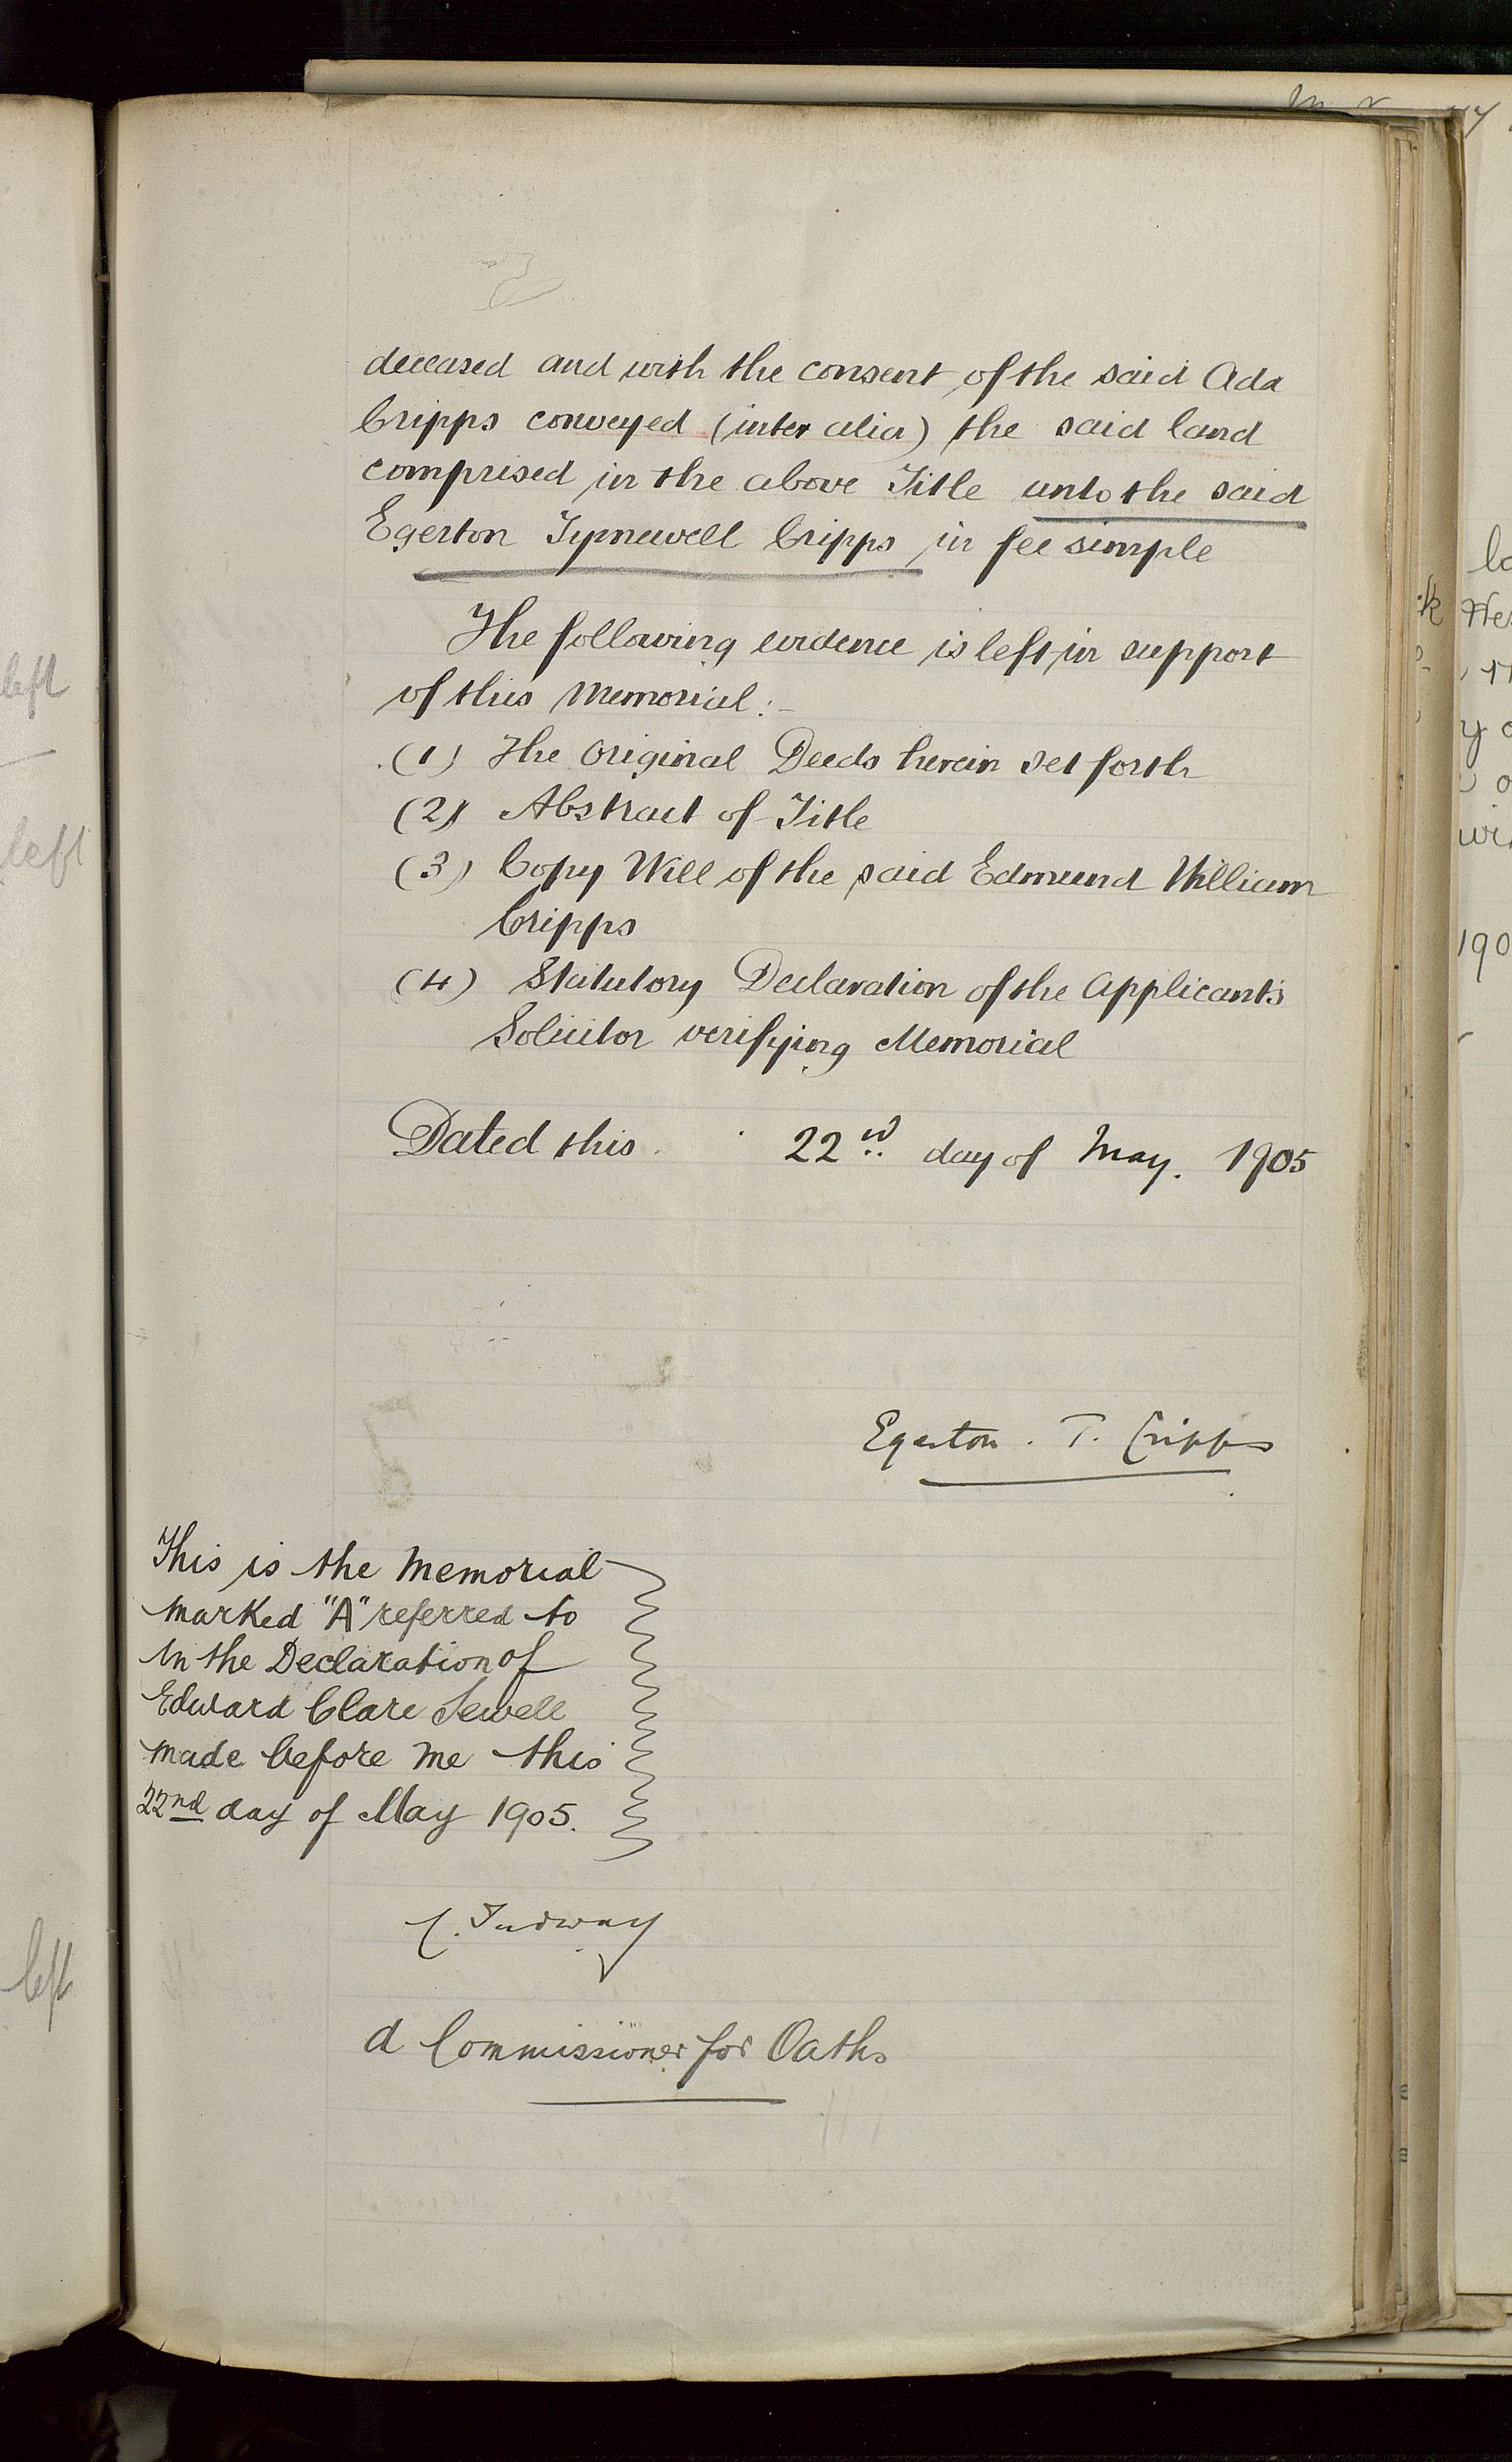 deceased and with the consent of the said Ada
Cripps conveyed (inter alia) the said land
comprised in the above Title unto the said
Egerton Tymewell Cripps in fee simple
The following evidence is left in support
of this Memorial:-
(1) The Original Deeds herein set forth
(2) Abstract of Title
(3) Copy Will of the said Edmund William
Cripps
(4) Statutory Declaration of the Applicant's
Solicitor verifying Memorial
Dated this 22nd day of May. 1905
Egerton. T. Cripps
This is the Memorial
marked "A" referred to
in the Declaration of
Edward Clare Sewell
made before me this
22nd day of May 1905.
C. Tudway
A Commissioner for Oaths
left
left
left